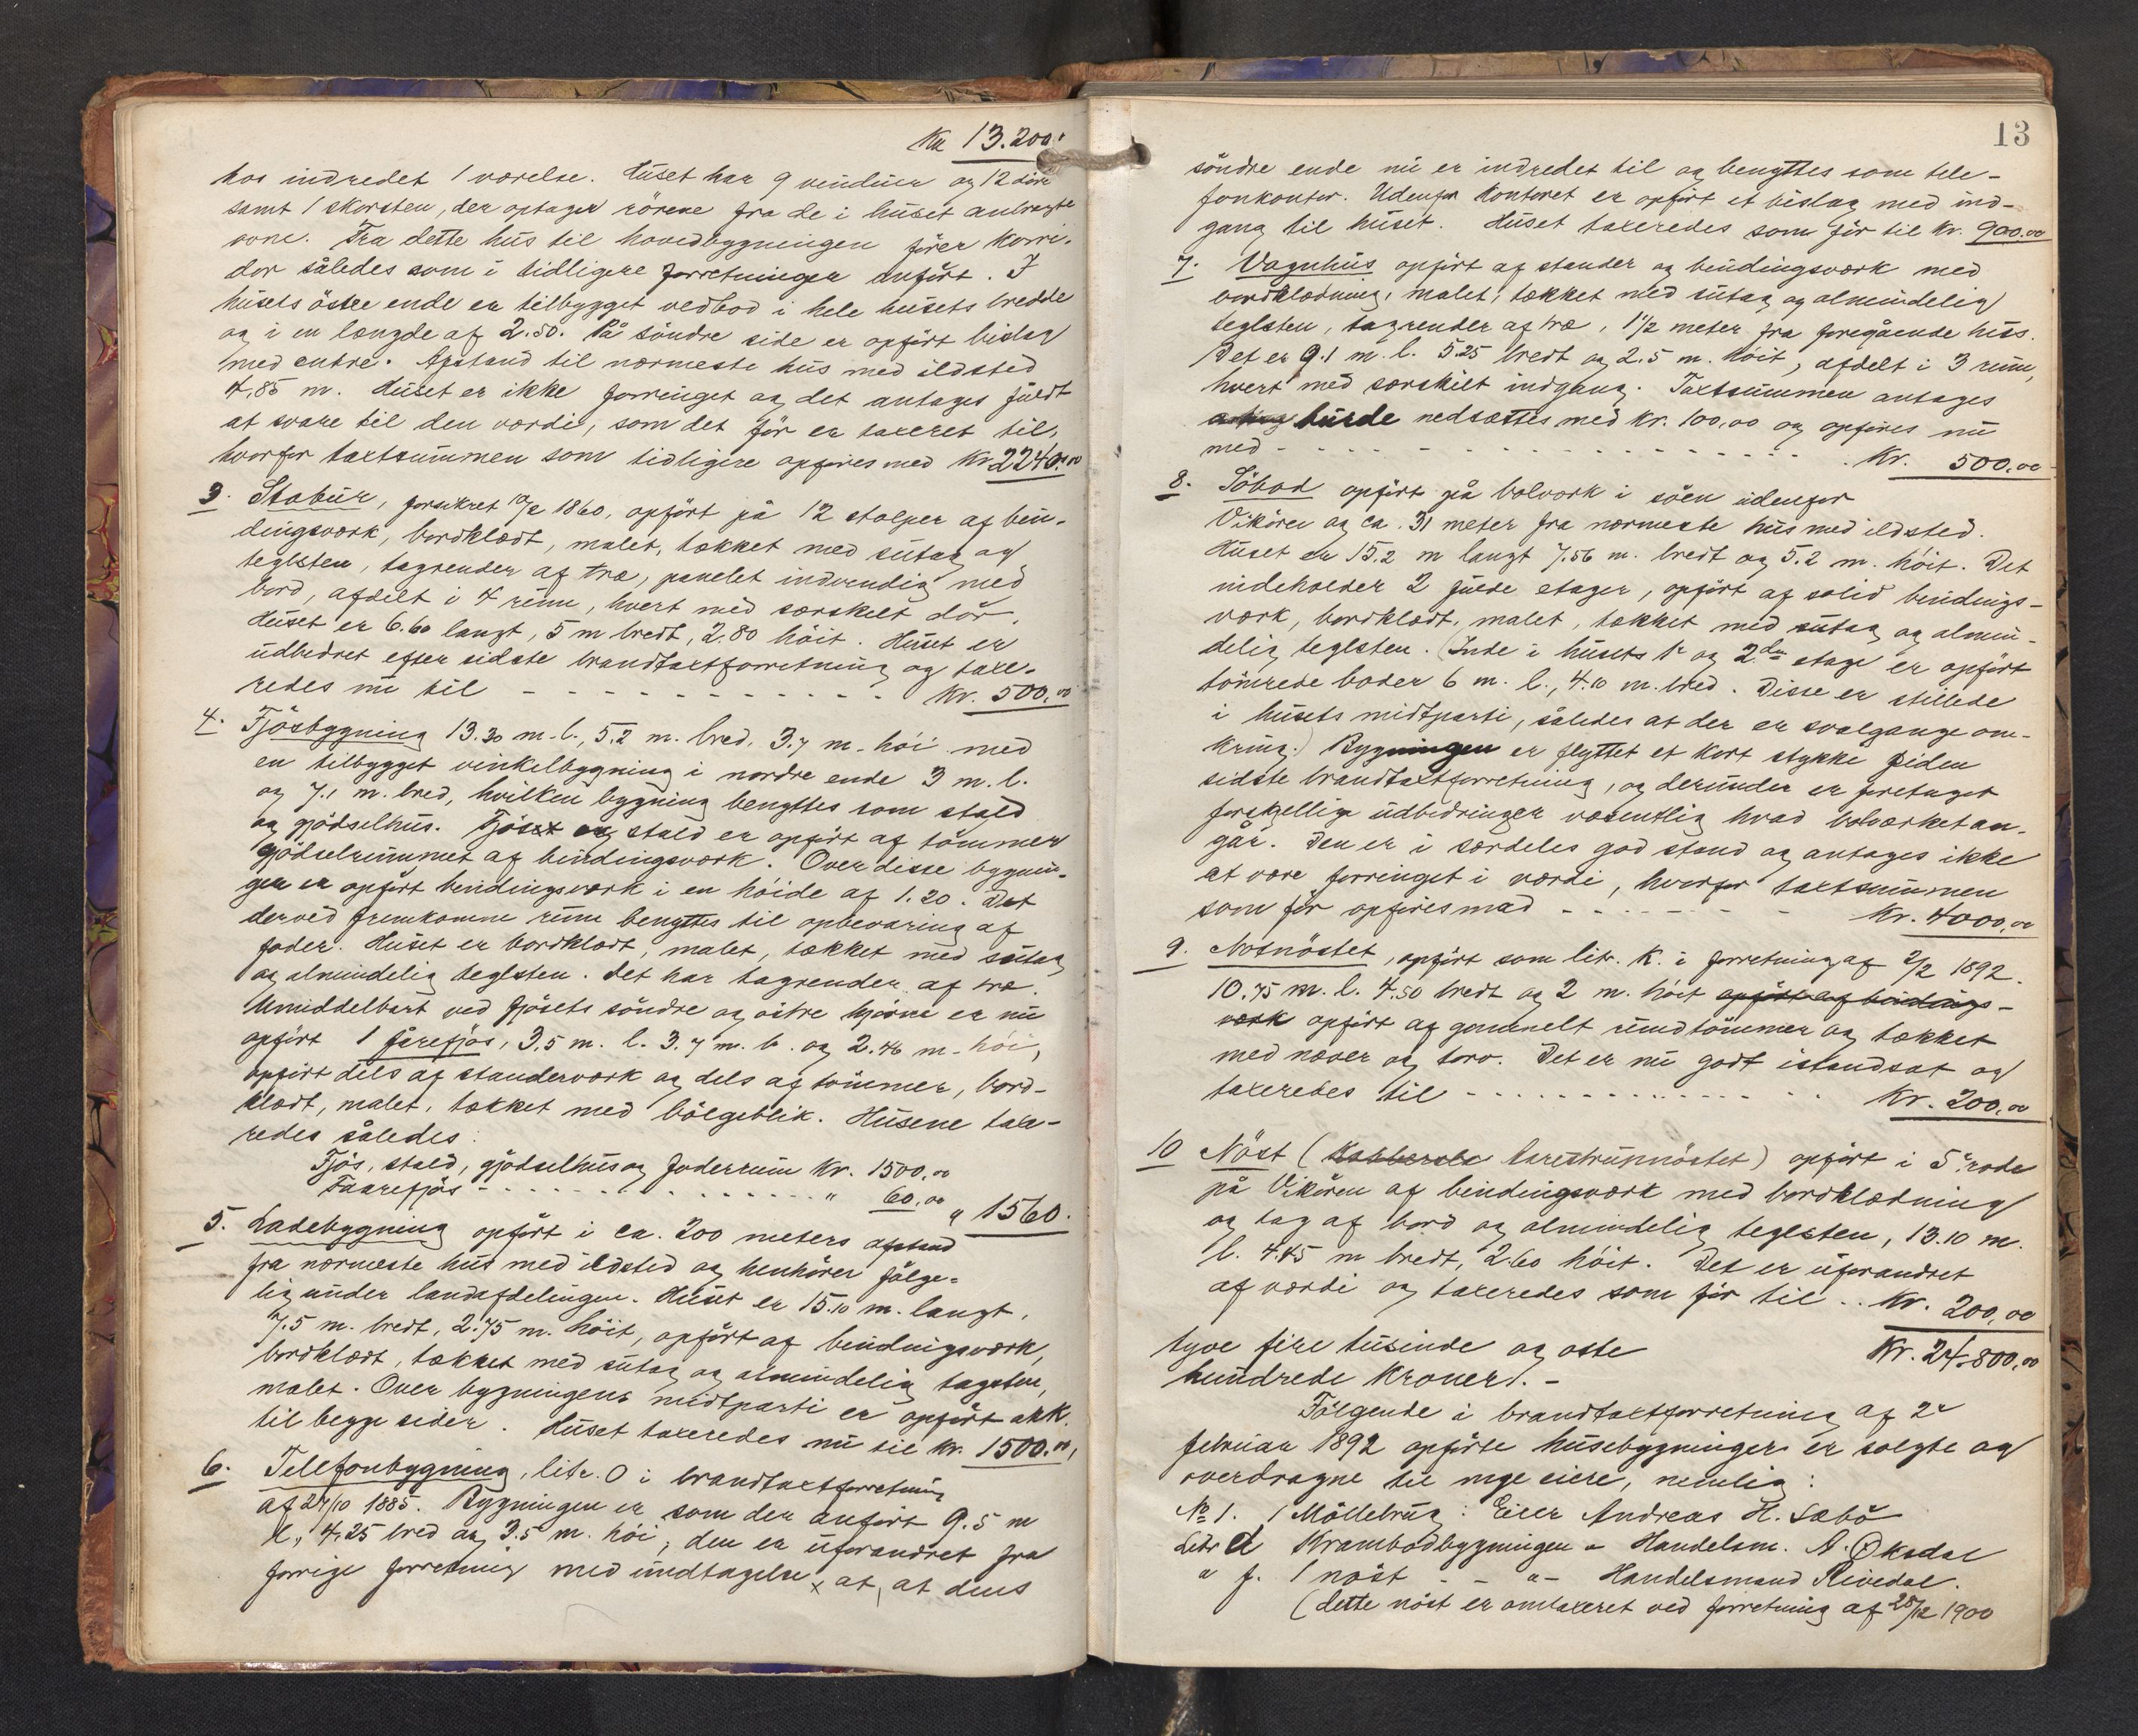 Kr 13.200.
hos indredet 1 værelse. Huset har 9 vinduer og 12 döre
samt 1 skorsten, der optager rörene fra de i huset anbragte
ovne. Fra dette hus til hovedbygningen förer korri-
dor således som i tidligere forretninger anført. I
husets östre ende er tilbygget vedbod i hele husets bredde
og i en længde af 2.50. På söndre side er opfört bislag
med entre. Afstand til nærmeste hus med ildsted
4.85 m. Huset er ikke forringet og det antages fuldt
at svare til den værdi, som det för er taxeret til,
hvorfor taxtsummen som tidligere opføres med Kr 2240.00
3. Stabur, forsikret 10/2 1860, opfört på 12 stolper af bin-
dingsværk, bordklædt, malet, tækket med sutag og
teglsten, tagrender af træ, panelet indvendig med
bord, afdelt i 4 rum, hvert med særskilt dör.
Huset er 6.60 langt, 5 m bredt, 2.80 höit. Huset er
udbedret efter sidste brandtaxtforretning og taxe-
redes nu til - - - - - - - - - - - Kr. 500.00
4. Fjösbygning 13.30 m. l., 5.2 m. bred, 3.7 m. höi med
en tilbygget vinkelbygning i nordre ende 3 m. l.
og 7.1 m. bred, hvilken bygning benyttes som stald
og gjödselhus. Fjöset og stald er opfört af tömmer
gjödselrummet af bindingsværk. Over disse bygnin-
ger er opfört bindingsværk i en höide af 1.20. Det
derved fremkomne rum benyttes til opbevaring af
foder. Huset er bordklædt, malet, tækket med sutag
og almindelig teglsten. Det har tagrender af træ.
Umiddelbart ved fjösets söndre og östre hjörne er nu
opfört 1 fårefjös, 3.5 m. l. 3.7 m. b. og 2.46 m. höi,
opfört dels af standerværk og dels af tömmer, bord-
klædt, malet, tækket med bölgeblik. Husene taxe-
redes således:
Fjös, stald, gjödselhus og foderrum Kr. 1500,00
Faarefjös - - - - - - - - - - - - - " 60.00 " 1560.
5. Ladebygning opfört i ca. 200 meters afstand
fra nærmeste hus med ildsted og henhörer fölge-
lig under landafdelingen. Huset er 15.10 m. langt,
7.5 m. bredt, 2.75 m. höit, opfört af bindingsværk,
bordklædt, tækket med sutag og almindelig tagsten,
malet. Over bygningens midtparti er opfört ark
til begge sider. Huset taxeredes nu til Kr. 1500.00,
6. Telefonbygning, litr. O i brandtaxtforretning
af 27/10 1885. Bygningen er som der anfört 9.5 m
l., 4,25 bred og 3.5 m. höi, den er uforandret fra
forrige forretning med undtagelse af, at dens
13
söndre ende nu er indredet til og benyttes som tele-
fonkontor. Udenfor kontoret er opfört et bislag med ind-
gang til huset. Huset taxeredes som för til Kr. 900.00
7. Vognhus opfört af stander og bindingsværk med
bordklædning, malet, tækket med sutag og almindelig
teglsten, tagrender af træ, 1 1/2 meter fra foregående hus.
Det er 9.1 m. l. 5.25 bredt og 2.5 m. höit, afdelt i 3 rum,
hvert med særskilt indgang. Taxtsummen antages
burde nedsættes med Kr. 100,00 og opføres nu
med - - - - - - - - - - - - - - - - Kr. 500.00
8. Söbod opfört på bolværk i söen udenfor
Vikören og ca. 31 meter fra nærmeste hus med ildsted.
Huset er 15.2 m langt 7.56 m. bredt og 5.2 m. höit. Det
indeholder 2 fulde etager, opfört af solid bindings-
værk, bordklædt, malet, tækket med sutag og almin-
delig teglsten. (Inde i husets 1e og 2den etage er opfört
tömrede boder 6 m. l., 4.10 m. bred. Disse er stillede
i husets midtparti, således at der er svalgange om-
kring.) Bygningen er flyttet et kort stykke siden
sidste brandtaxtforretning, og derunder er foretaget
forskjellige udbedringer væsentlig hvad bolværket an-
går. Den er i særdeles god stand og antages ikke
at være forringet i værdi, hvorfor taxtsummen
som för opføres med - - - - - - - Kr. 4000,00
9. Notnöstet, opfört som litr. K. i forretning af 2/2 1892.
10.75 m. l. 4.50 bredt og 2 m. höit opfört af bindings-
værk opfört af gammelt rundtömmer og tækket
med næver og torv. Det er nu godt istandsat og
taxeredes til - - - - - - - - - - - - - - Kr. 200,00
10 Nöst ( Larestrupnöstet) opfört i 5e rode
på Vikören af bindingsværk med bordklædning
og tag af bord og almindelig teglsten, 13.10 m.
l. 4.45 m bredt, 2.60 höit. Det er uforandret
af værdi og taxeredes som för til .. Kr. 200,00
tyve fire tusinde og otte Kr. 24.800,00
hundrede Kroner). -
Fölgende i brandtaxtforretning af 2e
februar 1892 opförte husebygninger er solgte og
overdragne til nye eiere, nemlig:
No 1. 1 Möllebrug: Eier Andreas H. Sæbö
Litr d Krambodbygningen " Handelsm. A. Öksdal
" f. 1 nöst - - " - Handelsmand Rivedal.
(dette nöst er omtaxeret ved forretning af 28/12 1900